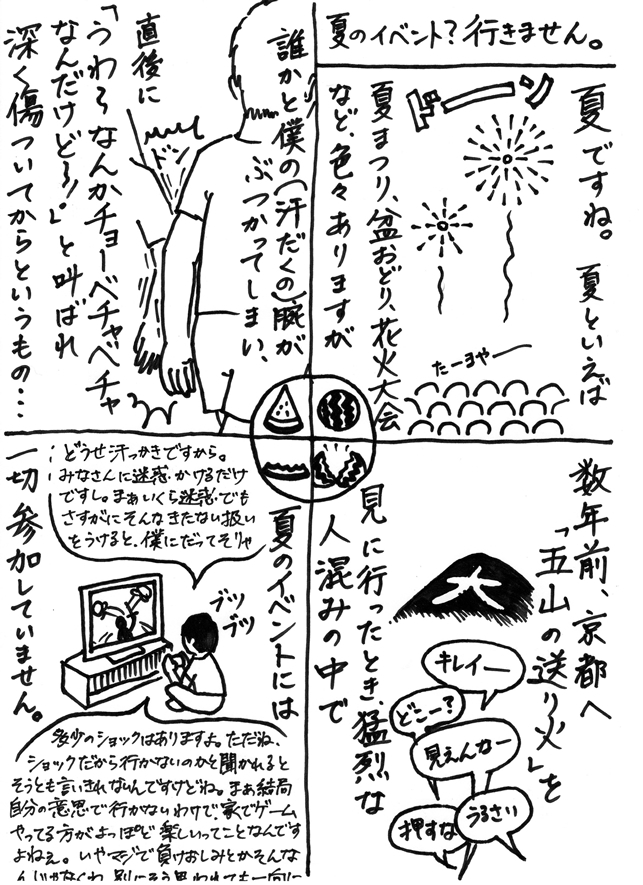 夏のイベント?行きません。
夏ですね。夏といえば
夏まつり、盆おどり、花火大会
など、色々ありますが
ドーン
たーまやー
数年前、京都へ
「五山の送り火」を
見に行ったとき、猛烈な
人混みの中で
大
キレイー
どこー?
見えんなー
うるさい
押すな
誰かと僕の(汗だくの)腕が
ぶつかってしまい、
ドン
直後に
「うわぁなんかチョーベチャベチャ
なんだけど〜!」と叫ばれ
深く傷ついてからというもの…
夏のイベントには
一切参加していません。
どうせ汗っかきですから。
みなさんに迷惑かけるだけ
ですし。まぁいくら迷惑でも
さすがにそんなきたない扱い
をうけると、僕にだってそりゃ
ブツ
ブツ
多少のショックはありますよ。ただね、
ショックだから行かないのかと聞かれると
そうとも言いきれないんですけどね。まぁ結局
自分の意思で行かないわけで、家でゲーム
やってる方がよっぽど楽しいってことなんです
よねぇ。いやマジで負けおしみとかそんな